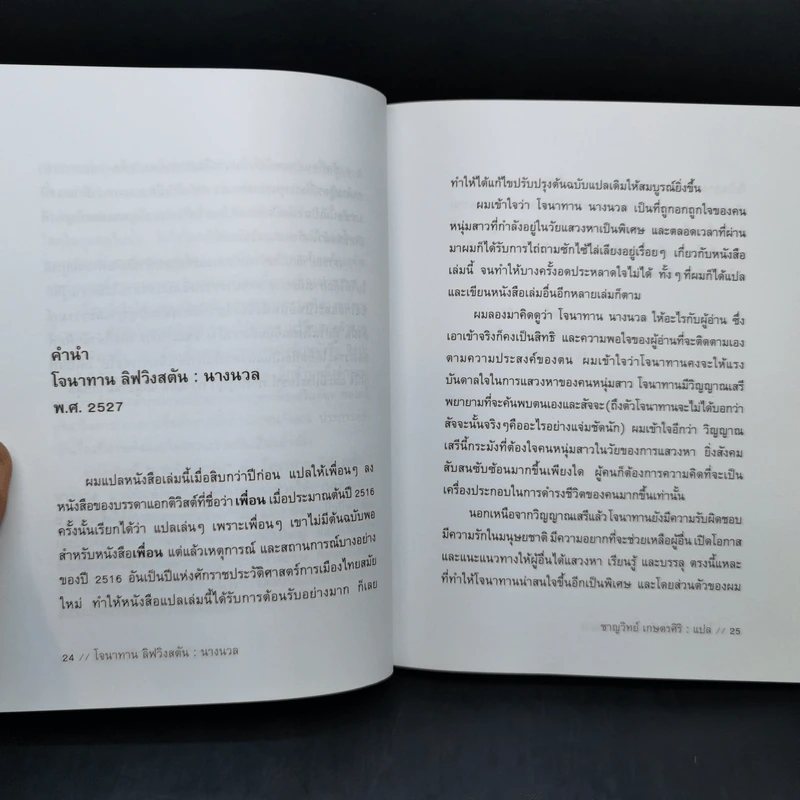 คำนำ
โจนาทาน ลิฟวิงสตัน : นางนวล
พ.ศ. 2527
ผมแปลหนังสือเล่มนี้เมื่อสิบกว่าปีก่อน แปลให้เพื่อนๆ ลง
หนังสือของบรรดาแอกติวิสต์ที่ชื่อว่า เพื่อน เมื่อประมาณต้นปี 2516
ครั้งนั้นเรียกได้ว่า แปลเล่นๆ เพราะเพื่อนๆ เขาไม่มีต้นฉบับพอ
สำหรับหนังสือเพื่อน แต่แล้วเหตุการณ์ และสถานการณ์บางอย่าง
ของปี 2516 อันเป็นปีแห่งศักราชประวัติศาสตร์การเมืองไทยสมัย
ใหม่ ทำให้หนังสือแปลเล่มนี้ได้รับการต้อนรับอย่างมาก ก็เลย
24 // โจนาทาน ลิฟวิงสตัน : นางนวล
ทำให้ได้แก้ไขปรับปรุงต้นฉบับแปลเดิมให้สมบูรณ์ยิ่งขึ้น
ผมเข้าใจว่า โจนาทาน นางนวล เป็นที่ถูกอกถูกใจของคน
หนุ่มสาวที่กำลังอยู่ในวัยแสวงหาเป็นพิเศษ และตลอดเวลาที่ผ่าน
มาผมก็ได้รับการไถ่ถามซักไซ้ไล่เลียงอยู่เรื่อยๆ เกี่ยวกับหนังสือ
เล่มนี้ จนทำให้บางครั้งอดประหลาดใจไม่ได้ ทั้งๆ ที่ผมก็ได้แปล
และเขียนหนังสือเล่มอื่นอีกหลายเล่มก็ตาม
ผมลองมาคิดดูว่า โจนาทาน นางนวล ให้อะไรกับผู้อ่าน ซึ่ง
เอาเข้าจริงก็คงเป็นสิทธิ และความพอใจของผู้อ่านที่จะติดตามเอง
ตามความประสงค์ของตน ผมเข้าใจว่าโจนาทานคงจะให้แรง
บันดาลใจในการแสวงหาของคนหนุ่มสาว โจนาทานมีวิญญาณเสรี
พยายามที่จะค้นพบตนเองและสัจจะ (ถึงตัวโจนาทานจะไม่ได้บอกว่า
สัจจะนั้นจริงๆ คืออะไรอย่างแจ่มชัดนัก) ผมเข้าใจอีกว่า วิญญาณ
เสรีนี้กระมังที่ต้องใจคนหนุ่มสาวในวัยของการแสวงหา ยิ่งสังคม
สับสนซับซ้อนมากขึ้นเพียงใด ผู้คนก็ต้องการความคิดที่จะเป็น
เครื่องประกอบในการดำรงชีวิตของคนมากขึ้นเท่านั้น
นอกเหนือจากวิญญาณเสรีแล้วโจนาทานยังมีความรับผิดชอบ
มีความรักในมนุษยชาติ มีความอยากที่จะช่วยเหลือผู้อื่น เปิดโอกาส
และแนะแนวทางให้ผู้อื่นได้แสวงหา เรียนรู้ และบรรลุ ตรงนี้แหละ
ที่ทำให้โจนาทานน่าสนใจขึ้นอีกเป็นพิเศษ และโดยส่วนตัวของผม
ชาญวิทย์ เกษตรศิริ : แปล // 25